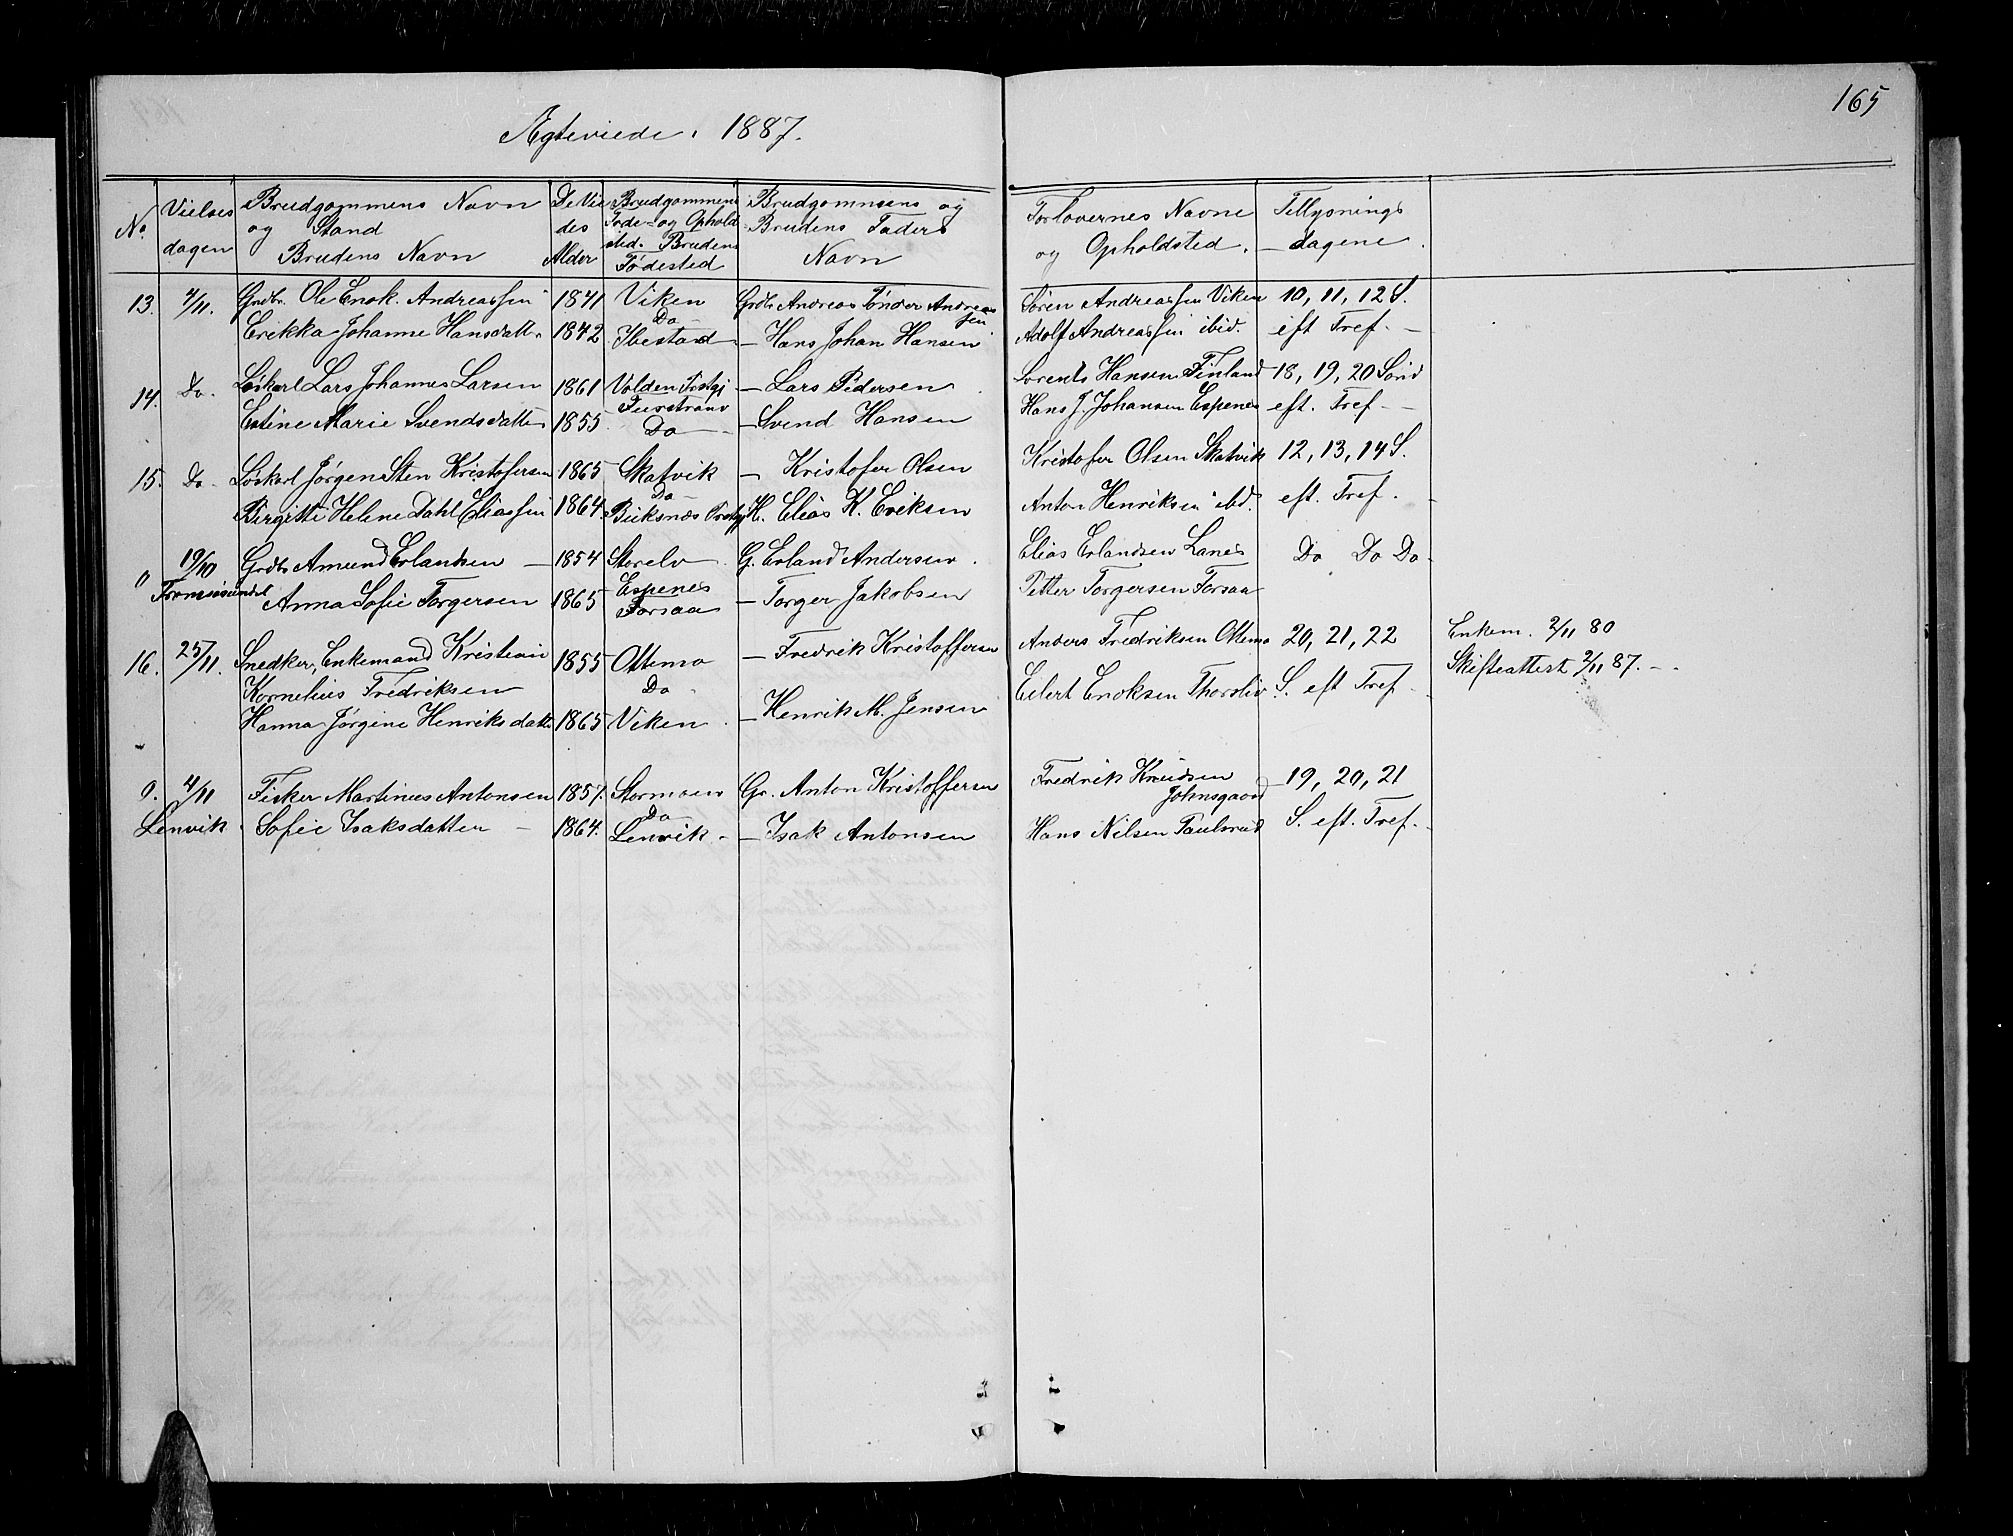 165
Ægteviede 1887.
No. Vielses dagen Brudgommens Navn og Stand Brudens Navn De Vie des Alder Brudgommens Føde- og Ophold sted. Brudens Fødested Brudgommens og Brudens Faders Navn Forlovernes Navne og Opholdsted. Tillysnings dagene.
13. 4/11. Grdbr. Ole Enok. Andreassen 1841 Viken Grdb. Andreas Tønder Andreas sen. Søren Andreassen Viken 10, 11, 12 S.
Erikka Johanne Hansdatt. 1842 Do Ibestad — Hans Johan Hansen Adolf Andreassen ibid. eft Tref. —
14. Do. Løskarl Lars Johannes Larsen 1861 Volden — Lars Pedersen Lorents Hansen Finland 18, 19, 20 Sønd
Estine Marie Svendsdatter 1855 Do — Svend Hansen Hans J. Johansen Espenes eft. Tref —
15. Do. Løskarl Jørgen Sten Kristofersen 1865 Skatvik — Kristofer Olsen Kristofer Olsen Skatvik 12, 13, 14 S.
Birgitte Helene Dahl Eliassen 1864 Do Buksnæs H. Elias K. Eriksen Anton Henriksen ibd. eft. Tref.
" 19/10 Grdb. Amund Erlantsen — 1854 Storelv G. Erland Andersen. Elias Erlandsen Lanes Do Do Do
Tromsøsundet Anna Sofie Torgersen 1865 Espenes Forsaa — Torger Jakobsen Petter Torgersen Forsaa
16. 25/11. Snedker, Enkemand Kristian 1855 Ottemo — Fredrik Kristoffersen Anders Fredriksen Ottemo 20, 21, 22 Enkem. 2/11 80
Kornelius Fredriksen Do Eilert Enoksen Thorsliv S. eft Tref Skifteattest 2/11 87. —
Hanna Jørgine Henriksdatt. 1865 Viken — Henrik M. Jensen
9. 4/11 Fisker Martinus Antonsen 1857. Stormoen Gr. Anton Kristoffersen Fredrik Knudsen Johnsgaard 19, 20, 21
Lenvik. Sofie Isaksdatter — 1864. Do Lenvik — Isak Antonsen Hans Nilsen S. eft. Tref.